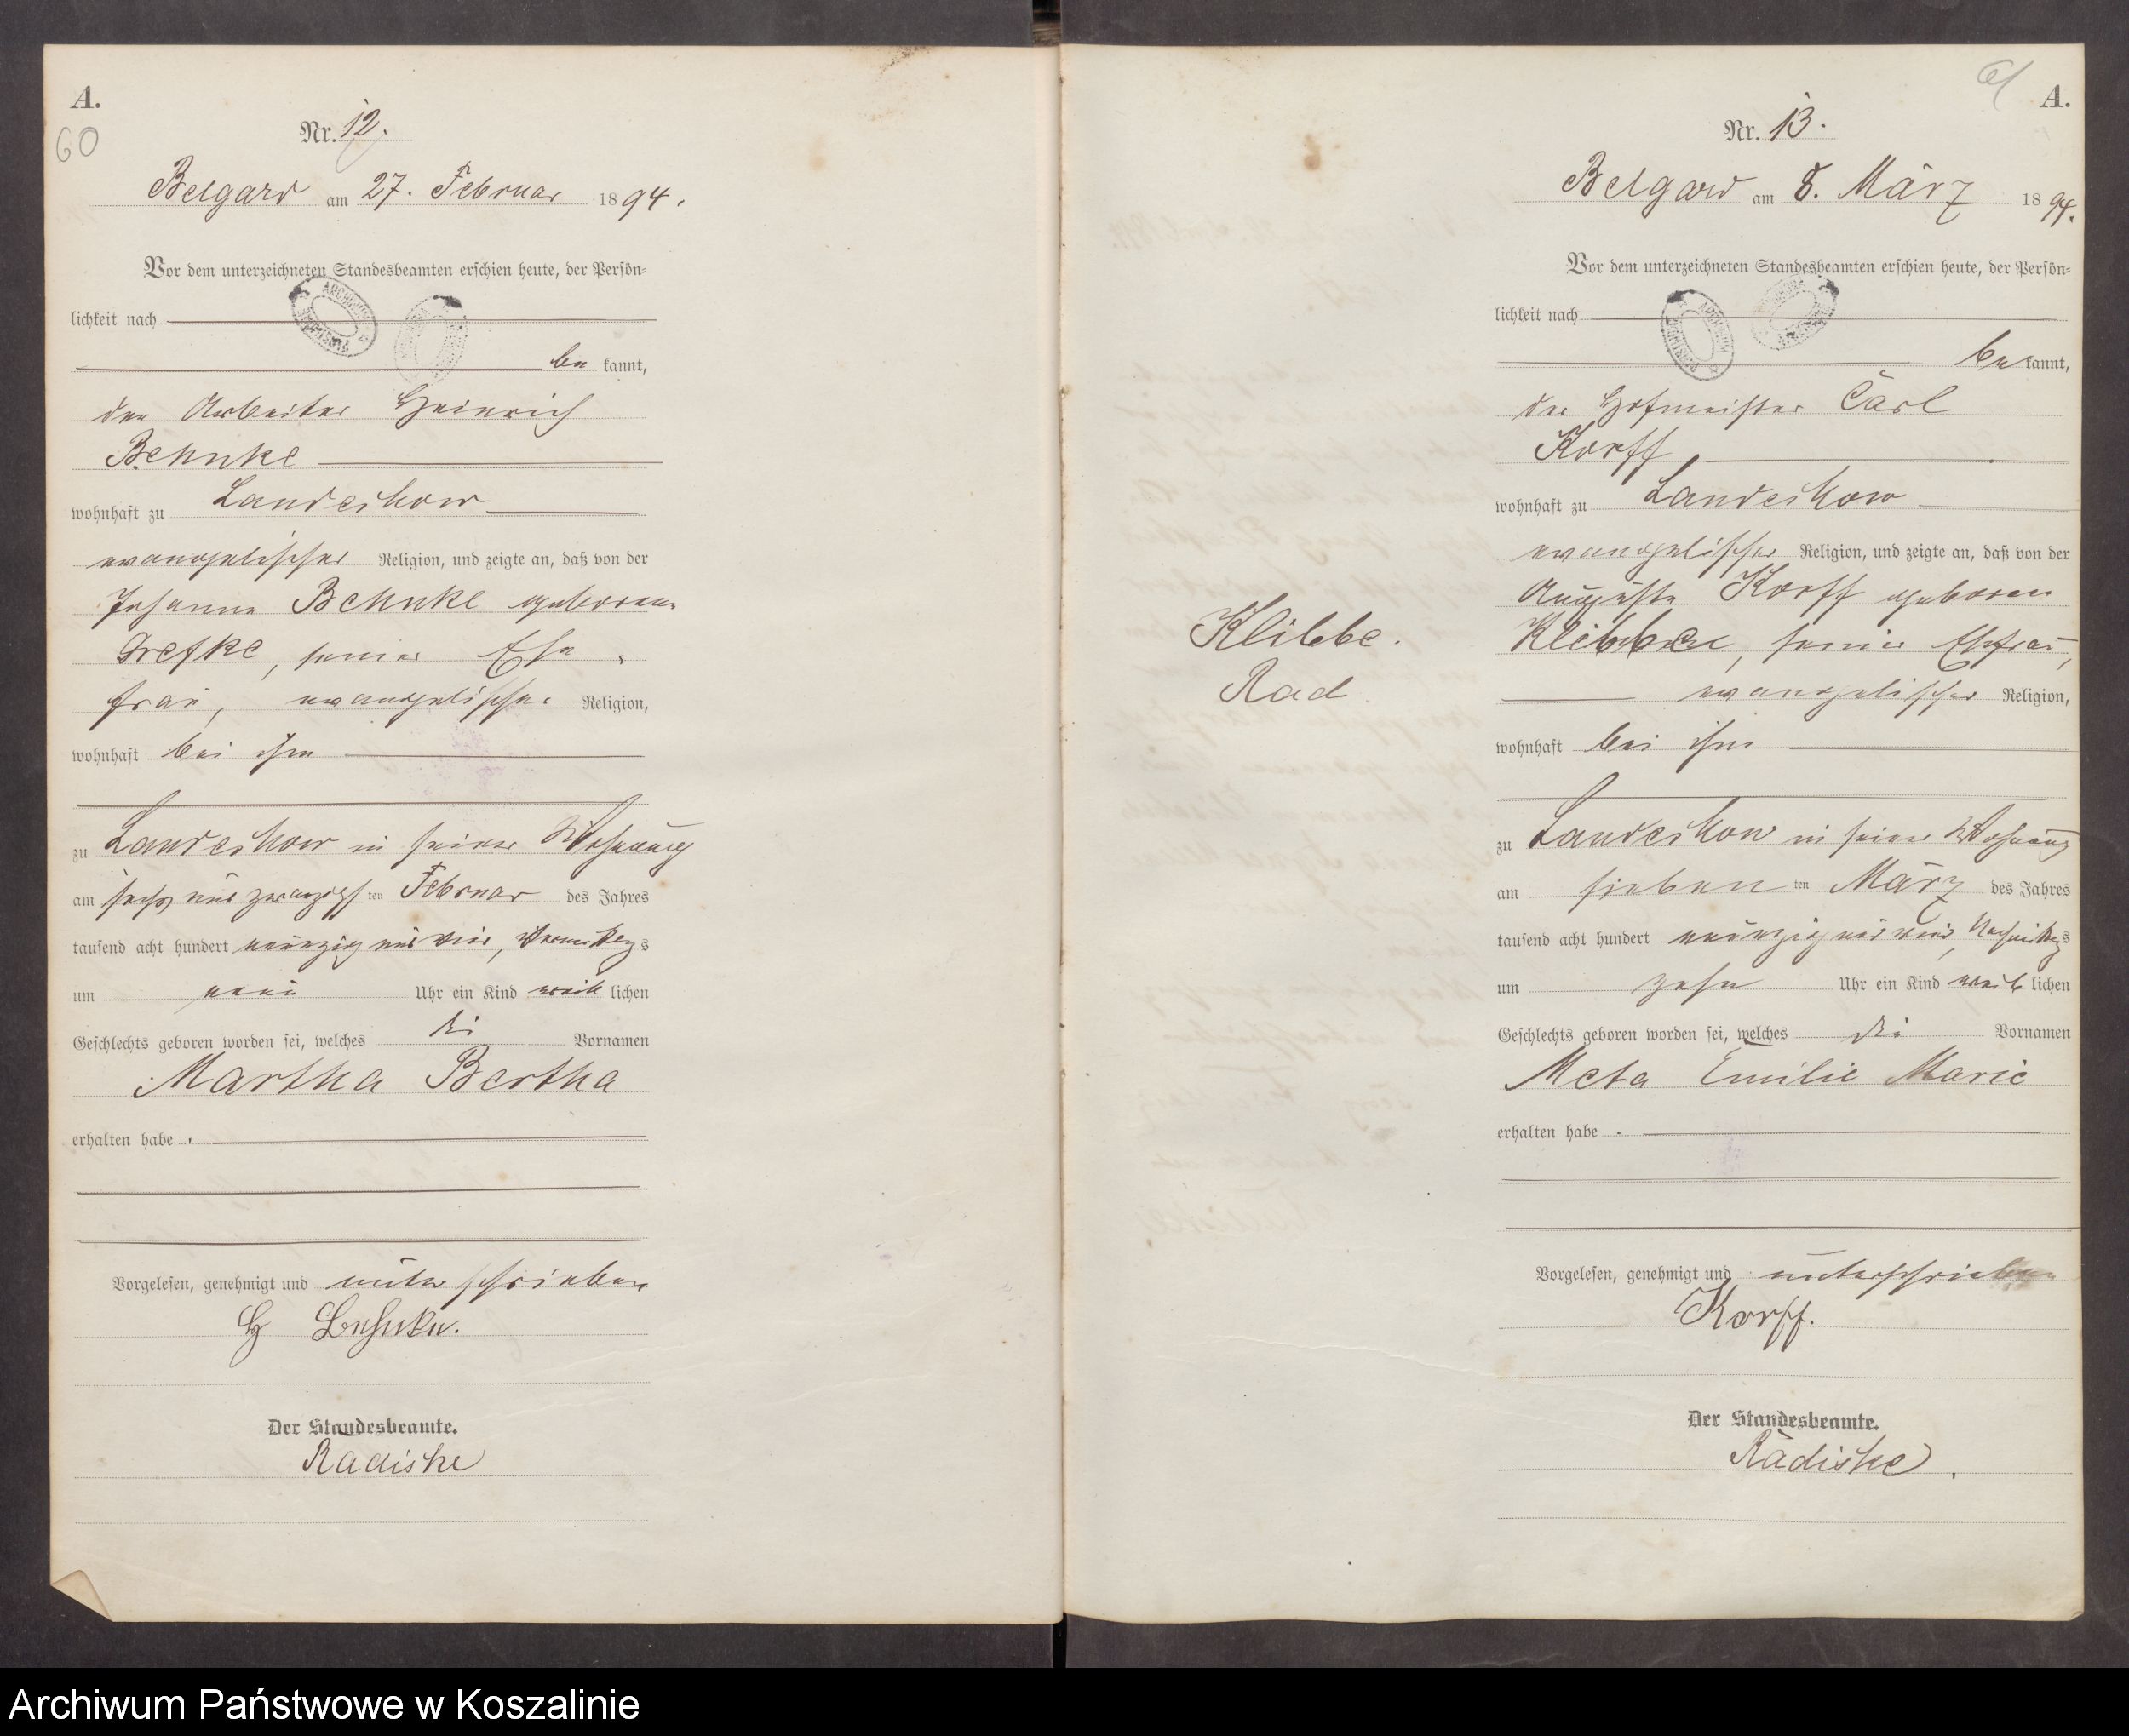 A.
60
Nr. 12.
Belgard am 27. Februar 1894.
Vor dem unterzeichneten Standesbeamten erschien heute, der Persön=
lichkeit nach
be kannt,
der Arbeiter Heinrich
Behnke
wohnhaft zu Landechow
evangelischer Religion, und zeigte an, daß von der
Johanna Behnke geborenen
Grefke, seiner Ehe-
frau, evangelischer Religion,
wohnhaft bei ihm
zu Landechow in seiner Wohnung
am sechs und zwanzigsten Februar des Jahres
tausend acht hundert neunzig und vier, Vormittags
um neun Uhr ein Kind weib lichen
Geschlechts geboren worden sei, welches die Vornamen
Martha Bertha
erhalten habe.
Vorgelesen, genehmigt und unterschrieben
H Behnke.
Der Standesbeamte.
Radiske
61 A.
Nr. 13.
Belgard am 8. März 1894.
Vor dem unterzeichneten Standesbeamten erschien heute, der Persön=
lichkeit nach
be kannt,
der Hofmeister Carl
Korff
wohnhaft zu Landechow
evangelischer Religion, und zeigte an, daß von der
Auguste Korff geboren
Klibbe, seiner Ehefrau,
evangelischer Religion,
wohnhaft bei ihm
zu Landechow in seiner Wohnung
am sieben ten März des Jahres
tausend acht hundert neunzig und vier, Nachmittags
um zehn Uhr ein Kind weib lichen
Geschlechts geboren worden sei, welches die Vornamen
Meta Emilie Marie
erhalten habe.
Vorgelesen, genehmigt und unterschrieben
Korff.
Der Standesbeamte.
Radiske.
Klibbe.
Rad
Archiwum Państwowe w Koszalinie